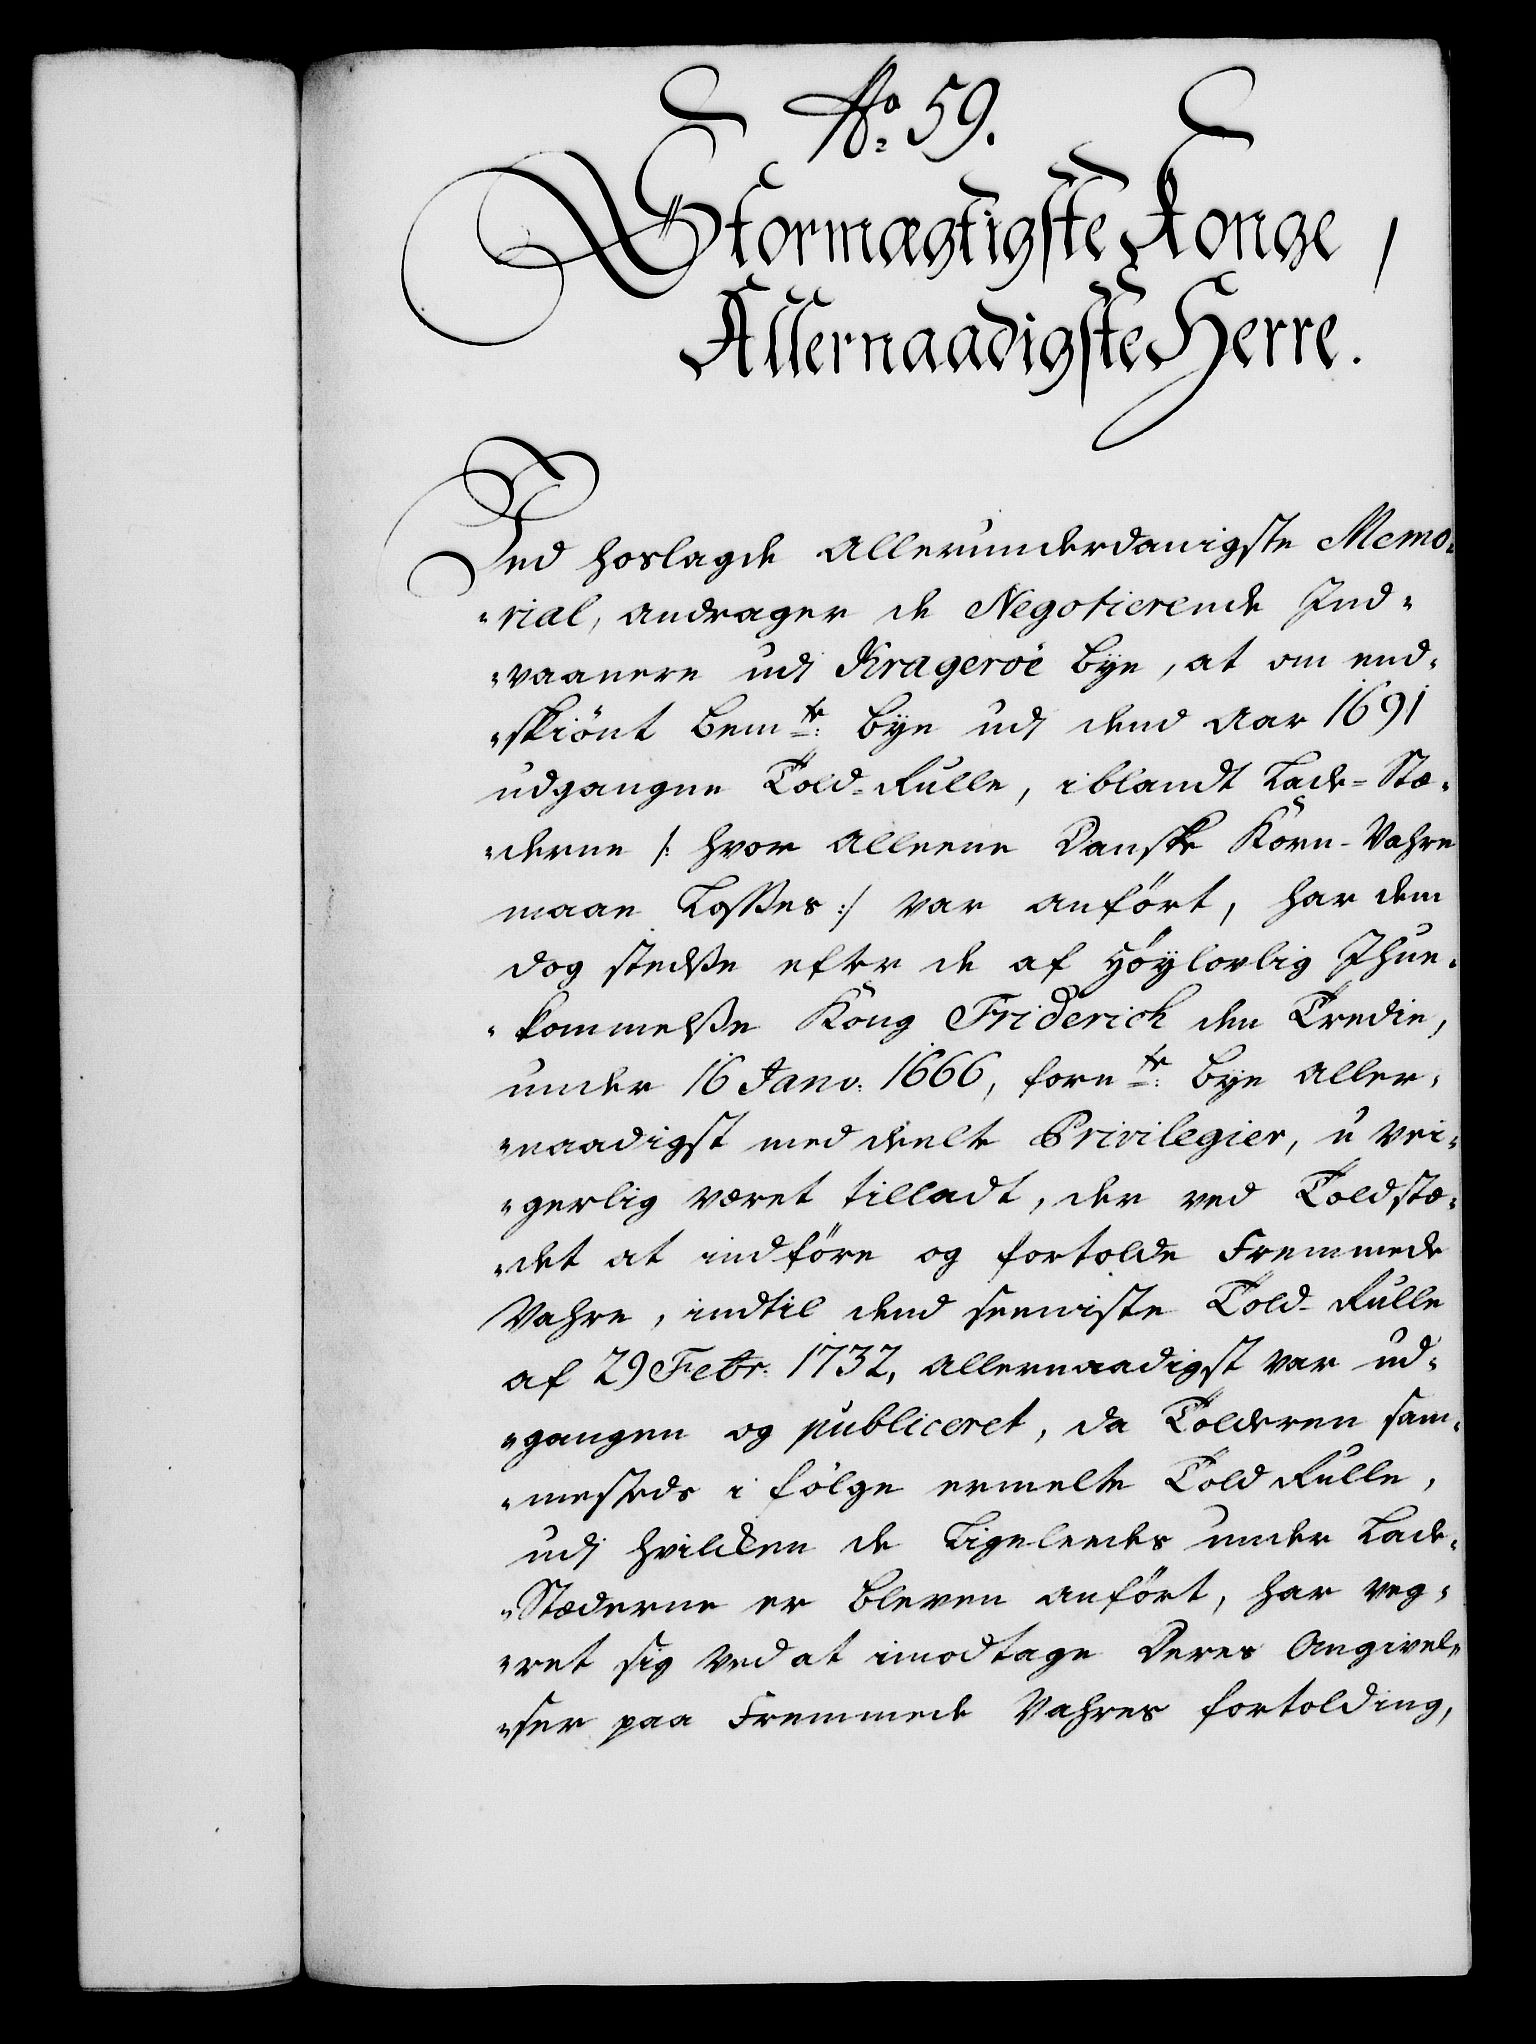 No. 59.
Stormægtigste Konge,
Allernaadigste Herre.
Ved hoslagde allerunderdanigste Memo-
-rial, andrager de Negotierende Ind-
-vaanere udj Krageröe bye, at om end-
-skiönt bemte: bye udj dend aar 1691
udgangne Told-Rulle, iblandt Lade-Stæ-
-derne /: hvor alleene Danske Korn-Vahre
maae Losses :/ var anfört, har dem
dog stedsse efter de af Höylovlig Ihue-
-kommelsse Kong Friderich den Tredie,
under 16 Janv. 1666, fornte: bye aller-
-naadigst meddeelte Privilegier, u-vei-
-gerlig været tilladt, der ved Toldstæ-
-det at indföre og fortolde Fremmede
Vahre, indtil dend seeniste Told-Rulle
af 29 Febr. 1732, allernaadigst var ud-
-gangen og publiceret, da Tolderen sam-
-mesteds i fölge ermelte Told Rulle,
udj hvilcken de Ligeledes under Lade-
-Stæderne er bleven anfört, har veg-
-ret sig ved at imodtage Deres Angivel-
-ser paa Fremmede Vahres fortolding,